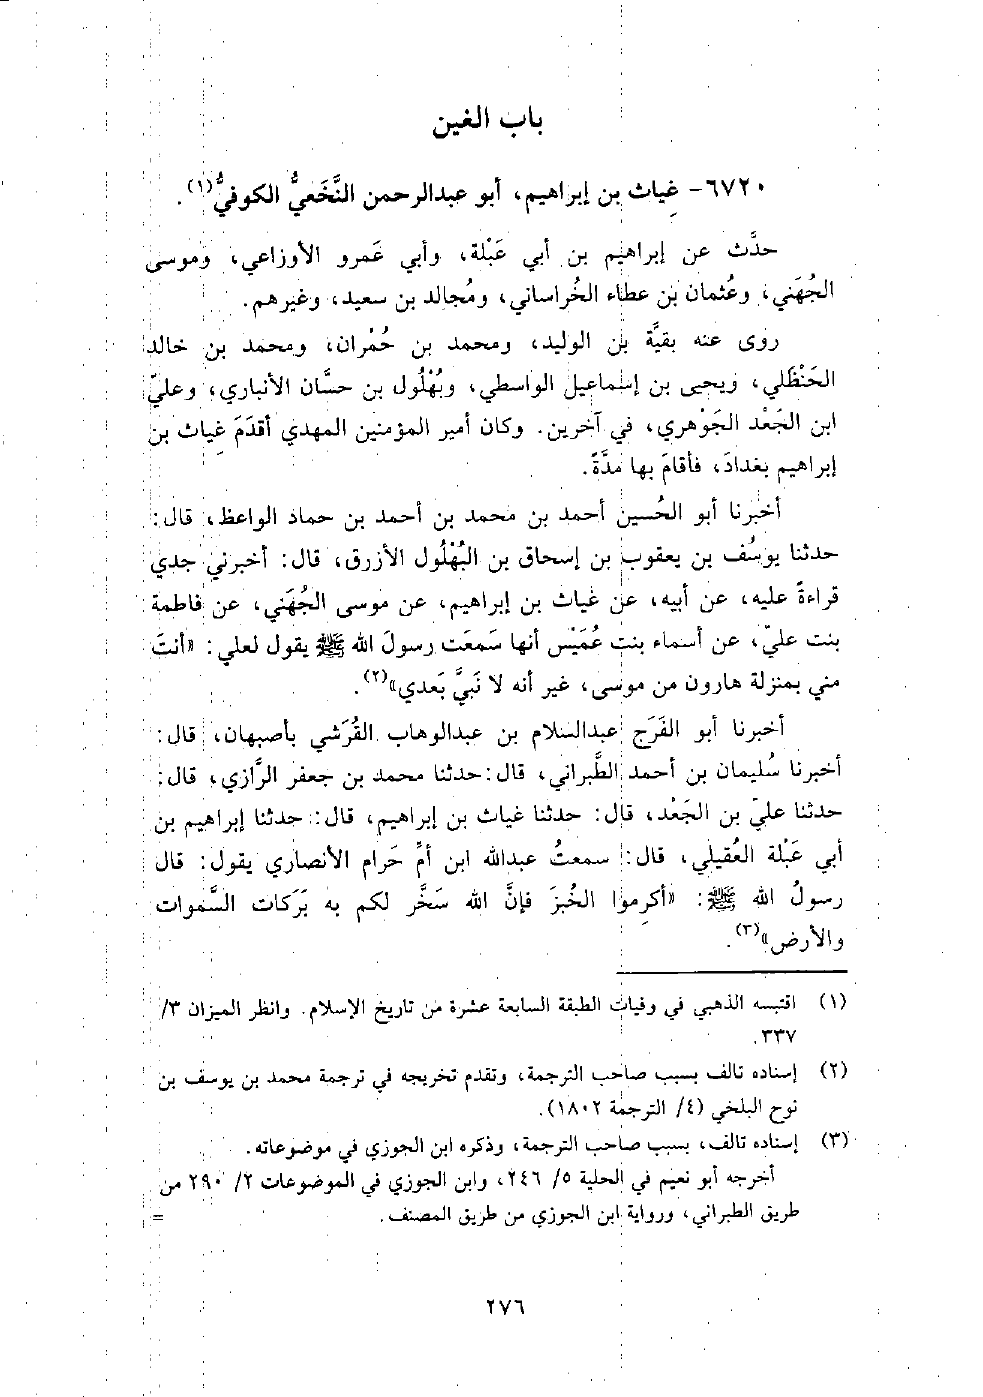 باب الغين
٦٧٢٠- غِياث بن إبراهيم، أبو عبدالرحمن النَّخَعيُّ الكوفيُّ(١).
حدَّث عن إبراهيم بن أبي عَبْلة، وأبي عَمرو الأوزاعي، وموسى
الجُهَني، وعُثمان بن عطاء الخُراساني، ومُجالد بن سعيد، وغيرهم.
روى عنه بقيَّة بن الوليد، ومحمد بن حُمْران، ومحمد بن خالد
الحَنْظَلي، ويحيى بن إسماعيل الواسطي، وبُهْلُول بن حسَّان الأنباري، وعليّ
ابن الجَعْد الجَوْهري، في آخرين. وكان أمير المؤمنين المهدي أقدَمَ غِياث بن
إبراهيم بغدادَ، فأقامَ بها مدَّةً.
أخبرنا أبو الحُسين أحمد بن محمد بن أحمد بن حماد الواعظ، قال:
حدثنا يوسُف بن يعقوب بن إسحاق بن البُهْلُول الأزرق، قال: أخبرني جدي
قراءةً عليه، عن أبيه، عن غياث بن إبراهيم، عن موسى الجُهَني، عن فاطمة
بنت عليّ، عن أسماء بنت عُمَيْس أنها سَمعَت رسولَ الله ﷺ يقول لعلي: «أنتَ
مني بمنزلة هارون من موسى، غير أنه لا نَبيَّ بَعدي»(٢).
أخبرنا أبو الفَرَج عبدالسلام بن عبدالوهاب القُرَشي بأصبهان، قال:
أخبرنا سُليمان بن أحمد الطَّبراني، قال: حدثنا محمد بن جعفر الرَّازي، قال:
حدثنا عليّ بن الجَعْد، قال: حدثنا غياث بن إبراهيم، قال: حدثنا إبراهيم بن
أبي عَبْلة العُقيلي، قال: سمعتُ عبدالله ابن أمِّ حَرام الأنصاري يقول: قال
رسولُ الله ﷺ: «أكرِموا الخُبزَ فإنَّ الله سَخَّر لكم به بَرَكات السَّموات
والأرض»(٣).
(١) اقتبسه الذهبي في وفيات الطبقة السابعة عشرة من تاريخ الإسلام. وانظر الميزان ٣/
٣٣٧.
(٢) إسناده تالف بسبب صاحب الترجمة، وتقدم تخريجه في ترجمة محمد بن يوسف بن
نوح البلخي (٤/ الترجمة ١٨٠٢).
(٣) إسناده تالف، بسبب صاحب الترجمة، وذكره ابن الجوزي في موضوعاته.
أخرجه أبو نعيم في الحلية ٥/ ٢٤٦، وابن الجوزي في الموضوعات ٢/ ٢٩٠ من
طريق الطبراني، ورواية ابن الجوزي من طريق المصنف. =
٢٧٦